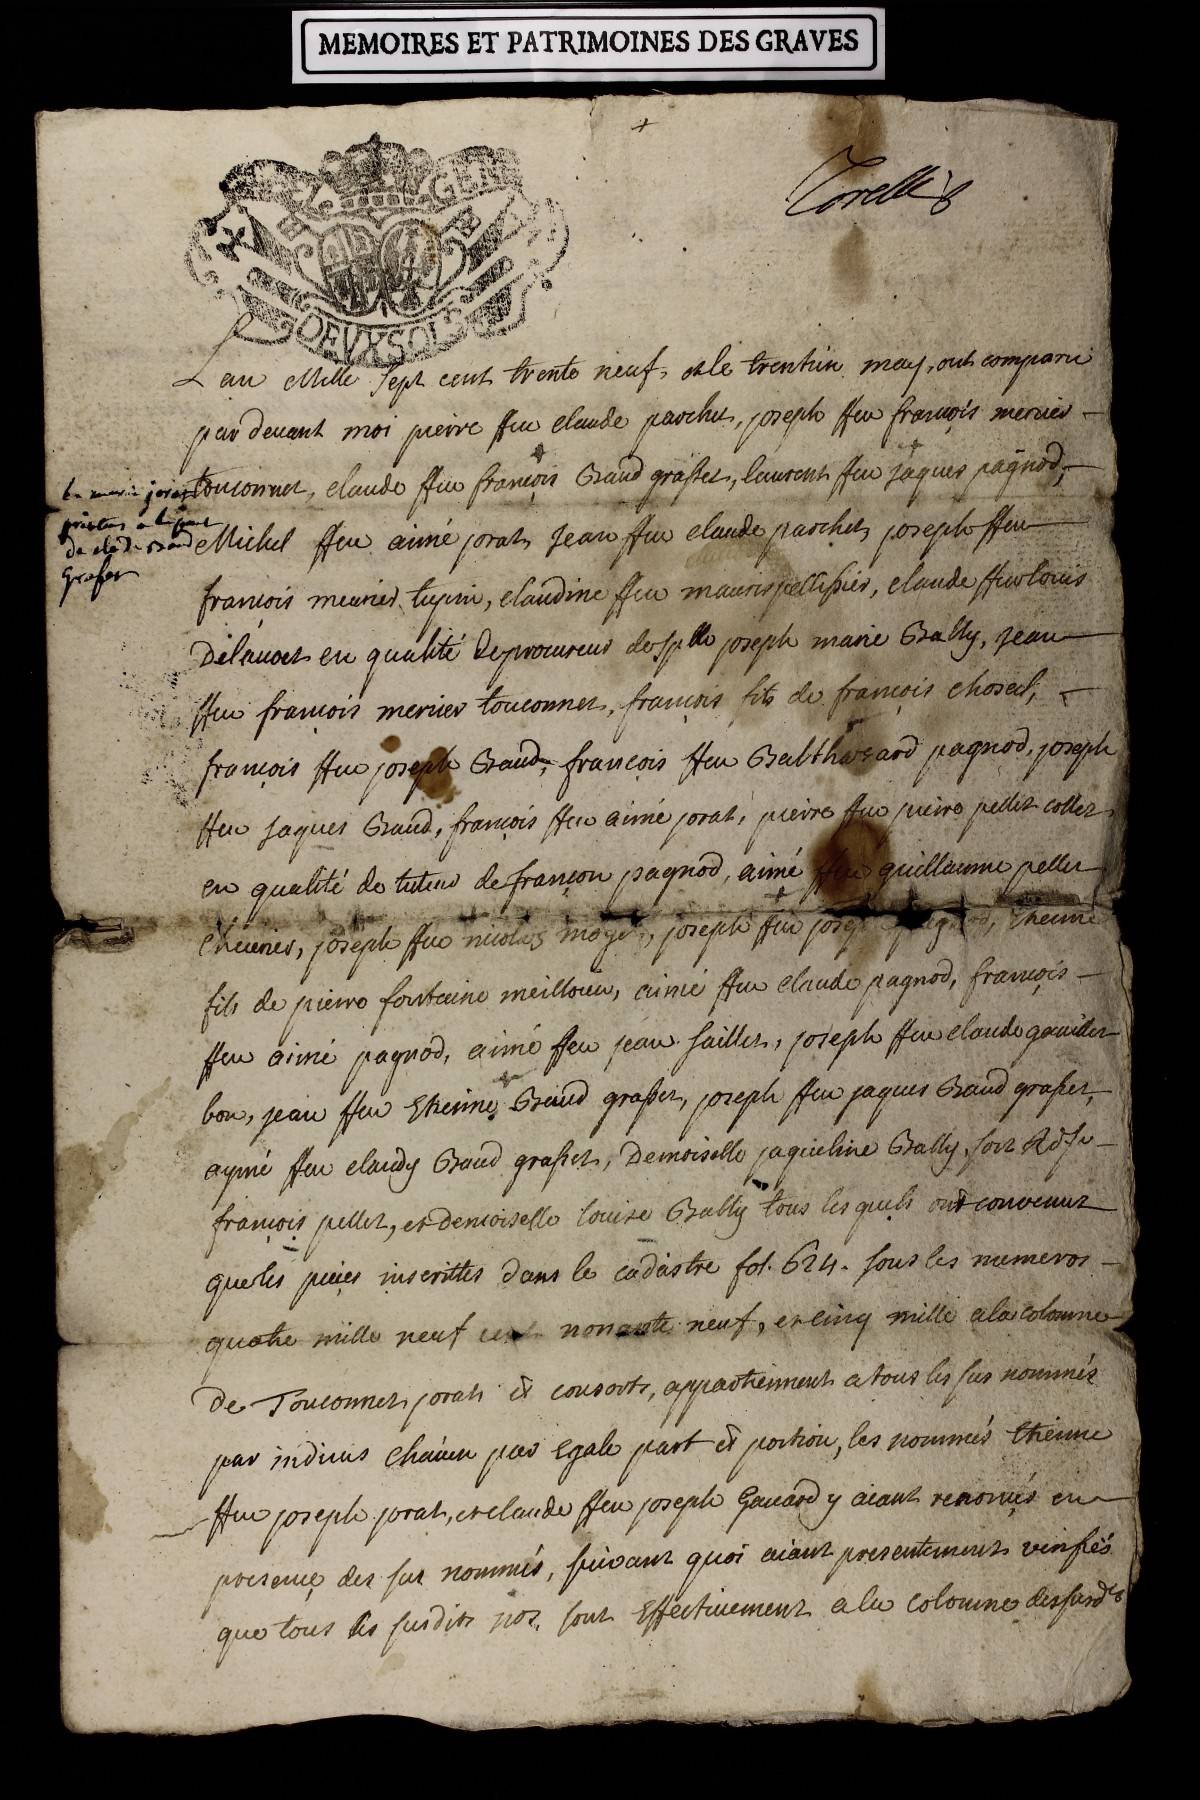 MEMOIRES ET PATRIMOINES DES GRAVES
DEUX SOLS
L'an Mille Sept cent trente neuf, et le trentun may, ont comparu
par devant moi pierre ffeu claude parchet, joseph ffeu françois mernier
touconnet, claude ffeu françois Baud grasset, laurent ffeu jaques pagnod,
Michel ffeu aimé jorat, Jean ffeu claude parchet, joseph ffeu
françois meunier tupin, claudine ffeu mauris pellissier, claude ffeu louis
en qualité de procureur de joseph marie Bally, jean
ffeu françois mernier touconnet, françois fils de françois
françois ffeu joseph Baud, françois ffeu Balthazard pagnod, joseph
ffeu jaques Baud, françois ffeu aimé jorat, pierre ffeu pierre pellet collet
en qualité de tuteur de françon pagnod, aimé ffeu guillaume pellet
joseph ffeu nicolas joseph ffeu Etienne
fils de pierre fontaine meillouin, aimé ffeu claude pagnod, françois
ffeu aimé pagnod, aimé ffeu jean saillet, joseph ffeu claude
bon, jean ffeu Etienne Baud grasset, joseph ffeu jaques Baud grasset,
aymé ffeu claudy Baud grasset, Demoiselle jaqueline Bally,
françois pellet, et demoiselle louise Bally tous lesquels ont convenut
que les pieces inscrittes dans le cadastre fol. 624. sous les numeros
quatre mille neuf cent nonante neuf, et cinq mille a la colomne
De Touconnet jorat et consorts, appartiennent a tous les sus nommés
par indivis chacun par Egale part et portion, les nommés Etienne
ffeu joseph jorat, et claude ffeu joseph Gavard y aiant renoncés en
presence des sus nommés, suivant quoi aiant presentement verifiés
que tous les susdits nos. sont Effectivement a la colomne